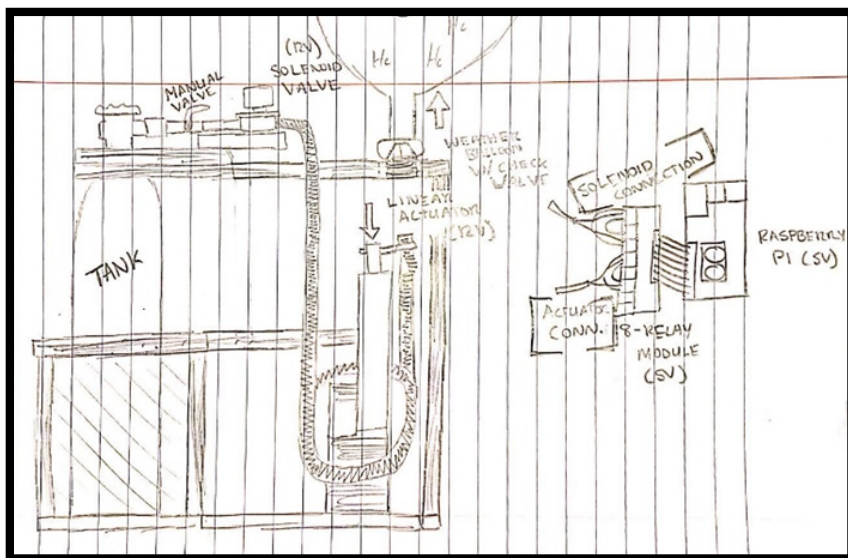 He
He
He
(12V)
SOLENOID
VALVE
MANUAL
VALVE
WEATHER
BALLOON
W/ CHECK
VALVE
LINEAR
ACTUATOR
(12V)
TANK
SOLENOID
CONNECTION
RASPBERRY
PI (5V)
ACTUATOR
CONN.
8-RELAY
MODULE
(5V)